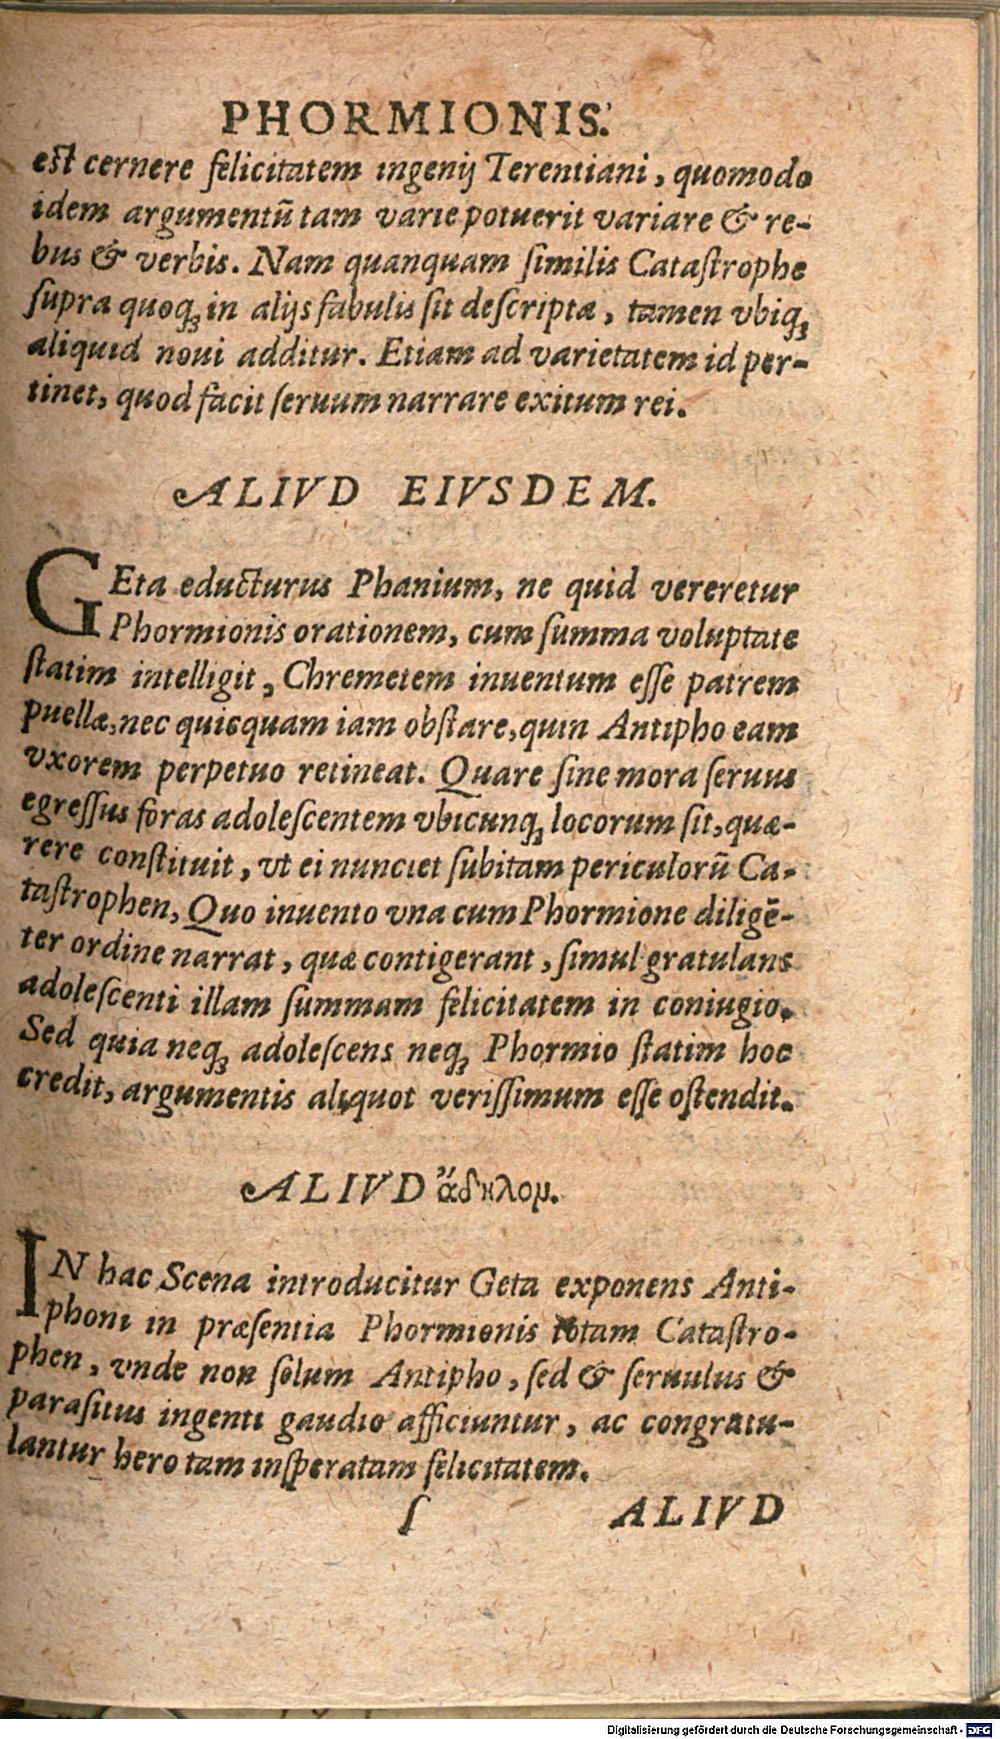 PHORMIONIS.
est cernere felicitatem ingenij Terentiani, quomodo
idem argumentū tam varie potuerit variare & re-
bus & verbis. Nam quanquam ſimilis Cataſtrophe
ſupra quoq; in alijs fabulis ſit deſcripta, tamen vbiq;
aliquid noui additur. Etiam ad varietatem id per-
tinet, quod facit ſeruum narrare exitum rei.
ALIVD EIVSDEM.
GEta educturus Phanium, ne quid vereretur
Phormionis orationem, cum ſumma voluptate
ſtatim intelligit, Chremetem inuentum eſſe patrem
puellæ, nec quicquam iam obſtare, quin Antipho eam
vxorem perpetuo retineat. Quare ſine mora ſeruus
egreſſus foras adoleſcentem vbicunq; locorum ſit, quæ-
rere conſtituit, vt ei nunciet ſubitam periculorū Ca-
taſtrophen, Quo inuento vna cum Phormione diligē-
ter ordine narrat, quæ contigerant, ſimul gratulans
adoleſcenti illam ſummam felicitatem in coniugio.
Sed quia neq; adoleſcens neq; Phormio ſtatim hoc
credit, argumentis aliquot veriſſimum eſſe oſtendit.
ALIVD ἄδηλομ.
IN hac Scena introducitur Geta exponens Anti-
phoni in præſentia Phormionis totam Cataſtro-
phen, vnde non ſolum Antipho, ſed & ſeruulus &
paraſitus ingenti gaudio afficiuntur, ac congratu-
lantur hero tam inſperatam felicitatem.
ſ ALIVD
Digitalisierung gefördert durch die Deutsche Forschungsgemeinschaft - DFG